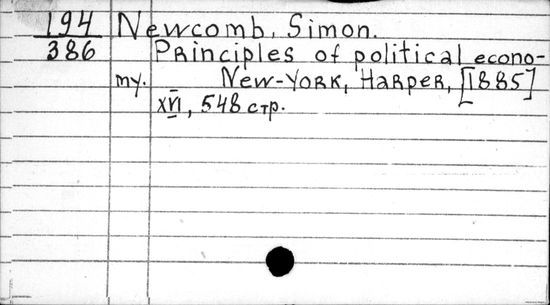 194 Newcomb, Simon.
386 Principles of political econo-
my. New-York, Harper, [1885]
XVI, 548 стр.